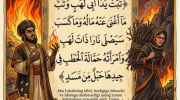 تَبَّتْ يَدَا أَبِي لَهَبٍ وَتَبَّ
مَا أَغْنَىٰ عَنْهُ مَالُهُ وَمَا كَسَبَ
سَيَصْلَىٰ نَارًا ذَاتَ لَهَبٍ
وَامْرَأَتُهُ حَمَّالَةَ الْحَطَبِ فِي
جِيدِهَا حَبْلٌ مِنْ مَسَدٍ